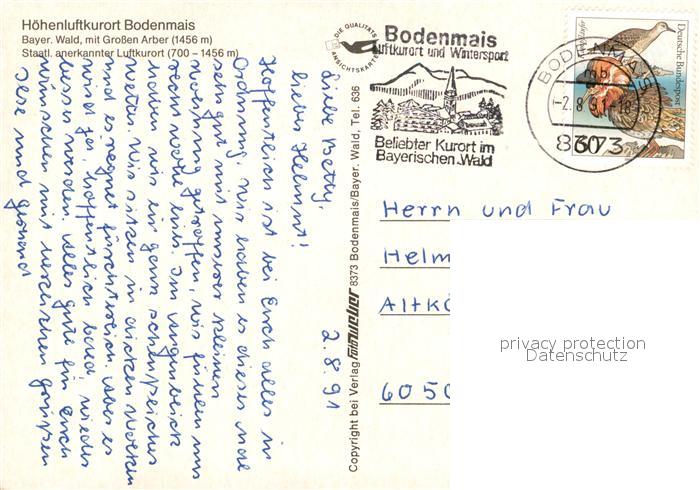 Höhenluftkurort Bodenmais
Bayer. Wald, mit Großen Arber (1456 m)
Staatl. anerkannter Luftkurort (700 – 1456 m)
DIE QUALITÄTS
ANSICHTSKARTE
Bodenmais
Luftkurort und Wintersport
Beliebter Kurort im
Bayerischen Wald
BODENMAIS
mb
-2.8.91-18
8373
60
Deutsche Bundespost
Liebe Betty,
lieber Helmut! 2.8.91
Hoffentlich ist bei Euch alles in
Ordnung. Wir haben es dieses Mal
sehr gut mit unserer kleinen
Wohnung getroffen, wir fühlen uns
recht wohl hier. Im Augenblick
haben wir ein ganz scheußliches
Wetter, wir sitzen in dicken Wolken
und es regnet fürchterlich. Aber es
wird ja hoffentlich bald wieder
besser werden. Alles gute für Euch
wünschen mit herzlichen Grüßen
Copyright bei Verlag 8373 Bodenmais/Bayer. Wald, Tel. 636
Herrn und Frau
Helm
Altkö
6050
privacy protection
Datenschutz